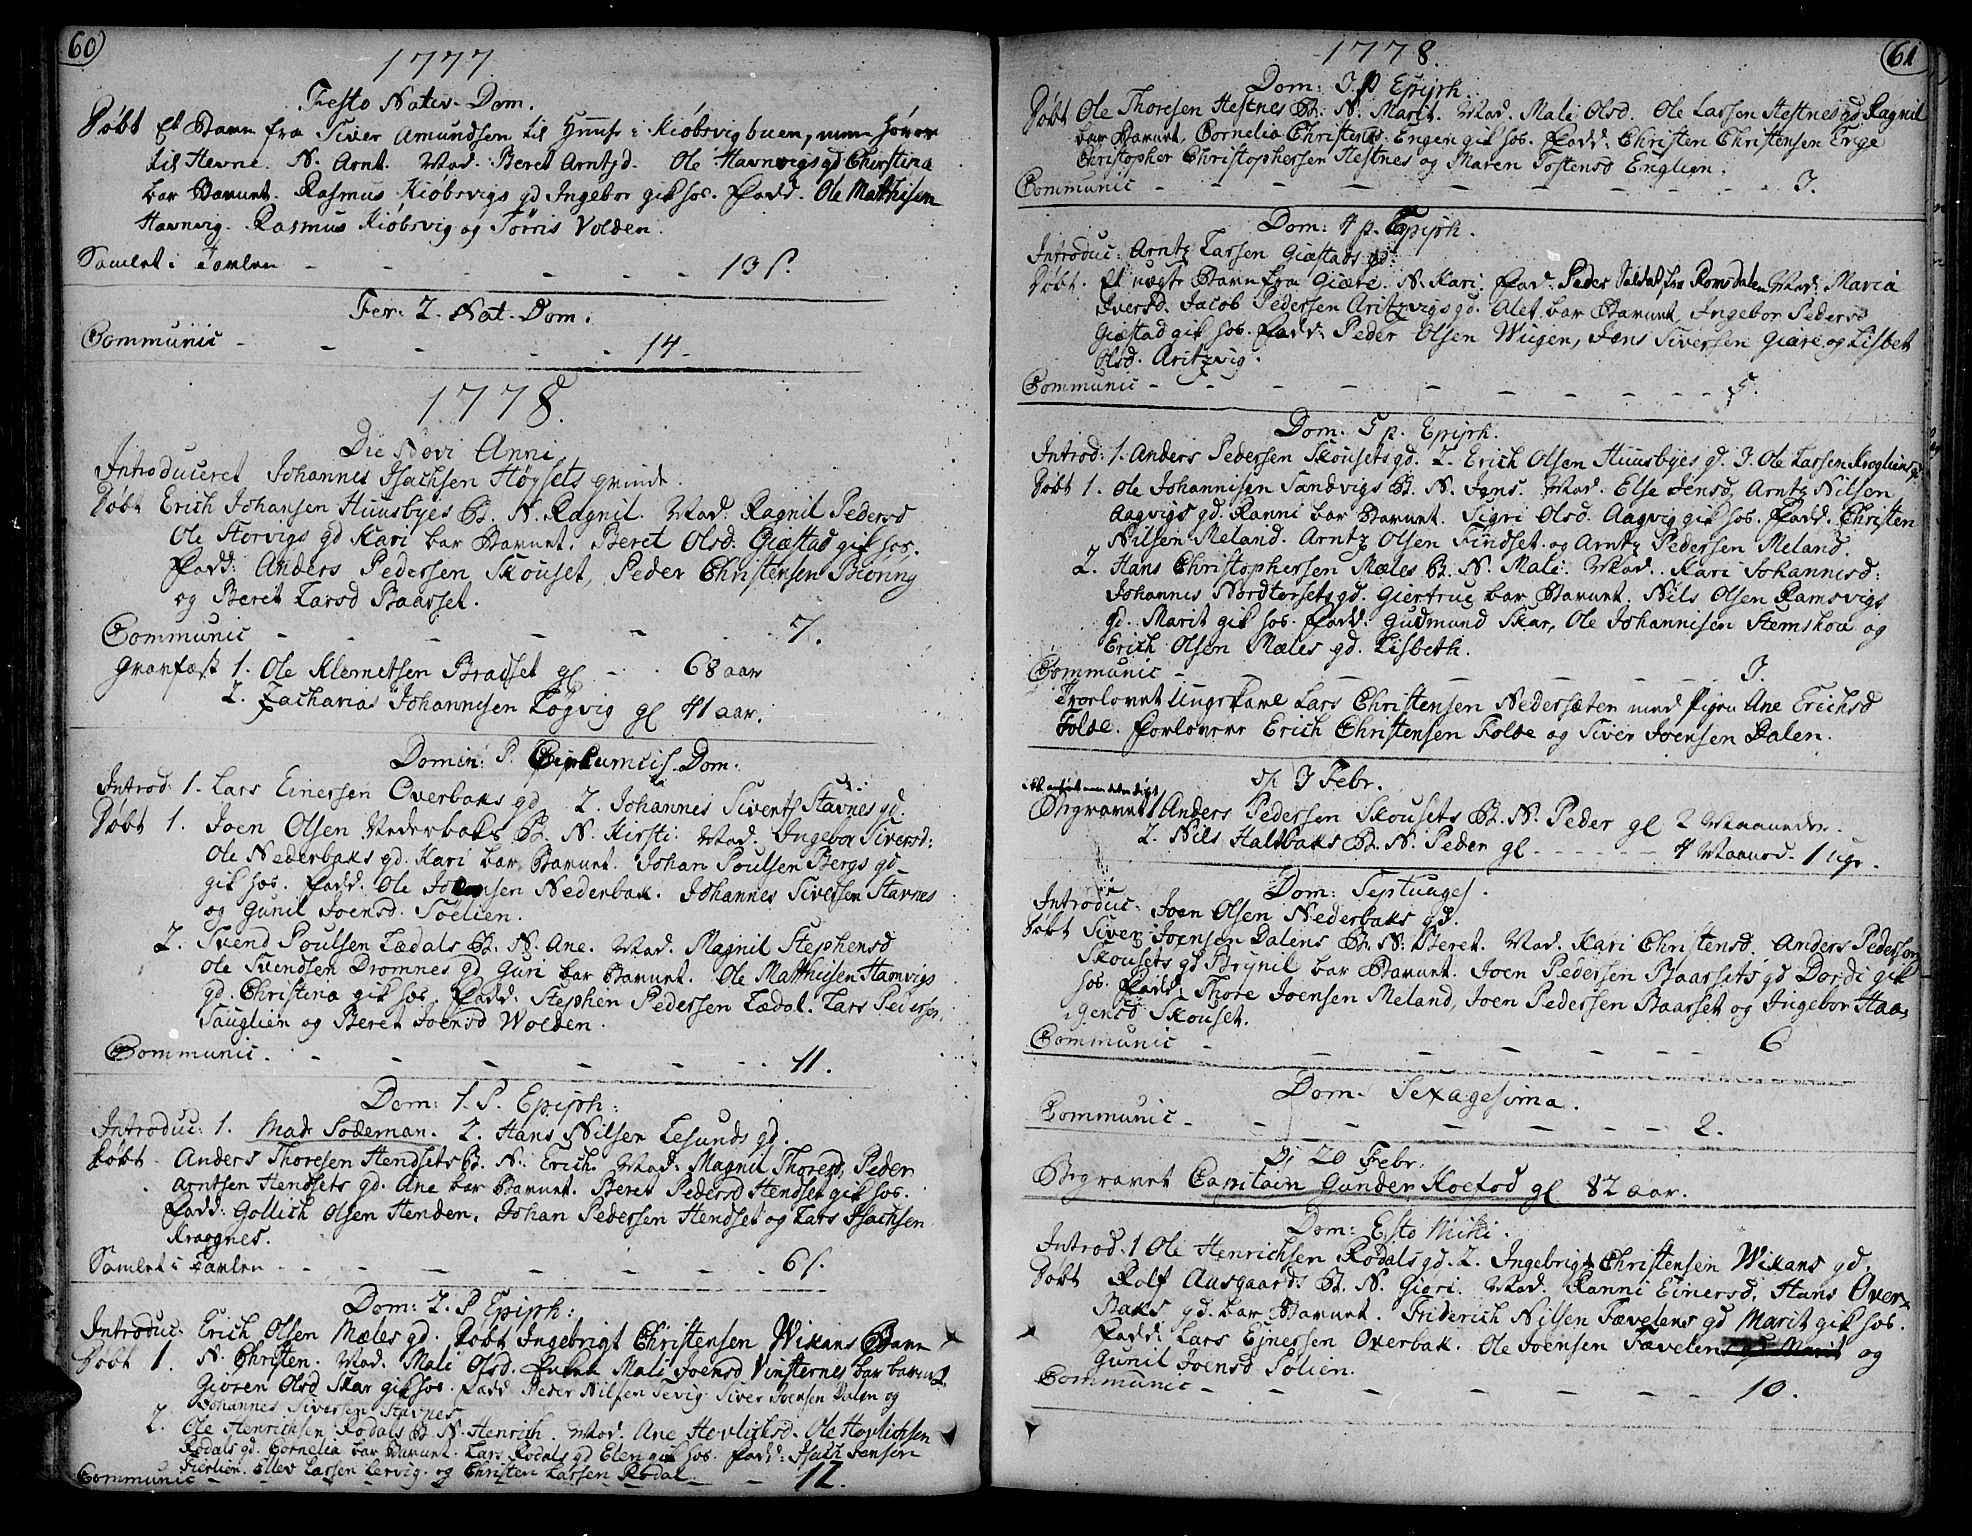 60
1777.
Festo Nativ. Dom.
Døbt Et Barn fra Siver Amundsen til Huuse i Kiøbsvig buen, men hører
til Hevne. N. Arnt. Mad. Beret Arntzd. Ole Havnvigs gd Christina
bar Barnet. Rasmus Kiøbsvigs gd Ingebor gik hos. Fadd. Ole Mathisen
Havnvig. Rasmus Kiøbsvig og Tørris Volden.
Samlet i Tavlen - - - - - 13 s.
Fer: 2. Nat. Dom.
Communic - - - - - 14.
1778.
Die Novi Anni
Introduceret Johannes Isachsen Høysets qvinde.
Døbt Erich Johansen Huusbyes B. N. Ragnil. Mad. Ragnil Pedersd
Ole Storvigs gd Kari bar Barnet. Beret Olsd. Giæstad gik hos.
Fadd: Anders Pedersen Skouset, Peder Christensen Biering
og Beret Larsd Baarset.
Communic - - - - - 7.
Gravfæst 1. Ole Klemetsen Bradset gl - - 68 aar
2. Zacharias Johannisen Løgvig gl 41 aar.
Domin: P. Dom:
Introd: 1. Lars Einersen Overbaks gd 2. Johannes Sivertz Stavnes gd:
Døbt 1. Joen Olsen Nederbaks B. N. Kirsti Mad. Ingebor Siversd:
Ole Nederbaks gd. Kari bar Barnet. Johan Poulsen Bergs gd
gik hos. Fadd. Ole Joensen Nederbak. Johannes Siversen Stavnes
og Gunil Joensd. Söelien.
2. Svend Poulsen Lædals B. N. Ane. Mad. Magnil Stephensd
Ole Svendsen Dromnes gd Guri bar Barnet. Ole Matthisen Hamvigs
gd. Christina gik hos. Fadd: Stephen Pedersen Lædal. Lars Pedersen
Sauglien og Beret Joensd Wolden.
Communic. - - - - - 11.
Dom: 1. P. Epiph:
Introduc: 1. Mad. Sodeman. 2. Hans Nilsen Lesunds gd.
Døbt. Anders Thoresen Hendsets B. N. Erich. Mad: Magnil Thoresd, Peder
Arntsen Hendsets gd. Ane bar Barnet. Beret Pedersd Hendset gik hos.
Fadd: Gollich Olsen Henden, Johan Pedersen Hendset og Lars Isachsen
Kraagnes.
Samlet i Tavlen - - - - - 6 s.
Dom: 2. P Epiph:
Introduc: Erich Olsen Mæles gd. Døbt Ingebrigt Christensen Wikans Barn
Døbt 1. N. Christen. Mad. Mali Olsd. Mali Joensd Vinsternes bar barnet
Giören Olsd Skar gik hos. Fadd Peder Nilsen Sevig. Siver Joensen Dalen og
Johannes Siversen Stavnes
2. Ole Henrichsen Rodals B. N. Henrich. Mad. Ane Hovlichsd. Ole Hovlichsen
Rodals gd. Cornelia bar Barnet. Lars Rodals gd Elen gik hos. Fadd: Isach Jensen
Fierlien. Ellev Larsen Lervig. og Christen Larsen Rodal.
Communic - - - - - 12.
61
1778.
Dom: 3. P Epiph.
Døbt Ole Thoresen Hestnes B. N. Marit. Mad. Mali Olsd. Ole Larsen Hestnes gd Ragnil
bar Barnet, Cornelia Christensd. Engen gik hos. Fadd: Christen Christensen Enge
Christopher Christophersen Hestnes og Maren Tostensd Englien.
Communic - - - - - 3.
Dom: 4 p. Epiph.
Introduc: Arntz Larsen Giæstads gd:
Døbt. Et uægte Barn fra Giære. N. Kari. Fad. Peder fra Romsdalen Mad: Maria
Iversd. Jacob Pedersen Aritzvigs gd. Alet bar Barnet, Ingebor Pedersd
Giæstad gik hos. Fadd: Peder Olsen Wiigen, Jens Siversen Giære og Lisbet
Olsd. Aritzvig.
Communic - - - - - 5.
Dom. 5 p. Epiph.
Introd: 1. Anders Pedersen Skousets gd. 2. Erich Olsen Huusbyes gd. 3. Ole Larsen Kragliens gd.
Døbt 1. Ole Johannisen Sandvigs B. N. Jens. Mad. Else Jensd, Arntz Nilsen
Aagvigs gd. Ranni bar Barnet. Sigri Olsd. Aagvig gik hos. Fadd. Christen
Nilsen Meland. Arntz Olsen Findset. og Arntz Pedersen Meland.
2. Hans Christophersen Mæles B. N. Mali. Mad. Kari Johannisd:
Johannis Nordtorsets gd. Giertrue bar Barnet. Nils Olsen Ramsvigs
gd. Marit gik hos. Fadd: Gudmund Skar, Ole Johannisen Stemshou og
Erich Olsen Mæles gd. Lisbeth.
Communic - - - - - 3.
Trorlovet Ungkarl Lars Christensen Nedersæten med Pigen Ane Erichsd
Folde. Forlovere Erich Christensen Folde og Siver Joensen Dalen.
d. 3 Febr.
Begravet 1 Anders Pedersen Skousets B. N. Peder gl 2 Maaneder.
2. Nils Haltbaks B. N. Peder gl - - - - 4 Maaned. 1 uge.
Dom: Septuages.
Introduc: Joen Olsen Nederbaks gd.
Døbt Siver Joensen Dalens B. N. Beret. Mad. Kari Christensd. Anders Pedersen
Skousets gd Brynil bar Barnet. Joen Pedersen Baarsets gd Dordi gik
hos. Fadd: Thore Joensen Meland, Joen Pedersen Baarset og Ingebor Haa-
gensd Skouset.
Communic - - - - - 6
Dom. Sexagesima.
Communic - - - - - 2.
D. 20 Febr.
Begravet Capitain Gunder Koefod gl 82 aar.
Dom: Esto Mihi.
Introd. 1 Ole Henrichsen Rodals gd. 2. Ingebrigt Christensen Wikans gd.
Døbt Rolf Ausgaards B. N. Giøri. Mad. Ranni Einersd, Hans Over-
baks gd. bar Barnet. Friderich Nilsen Fævelens gd Marit gik hos.
Fadd: Lars Ejnersen Overbak. Ole Joensen Fævelen og
Gunil Joensd Solien.
Communic - - - - - 10.